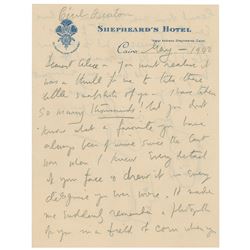 Cecil Beaton
SHEPHEARD'S HOTEL
Cairo May - 1942
Dearest Alice - You must realise it
was a thrill for me to take those
little snapshots of you - I have taken
So many thousands! but you don't
know what a favourite you have
always been of mine since the last
war when I knew every detail
of your face & drew it in every
disguise you ever wore. It made
me suddenly remember a photograph
of you in a field of corn when you